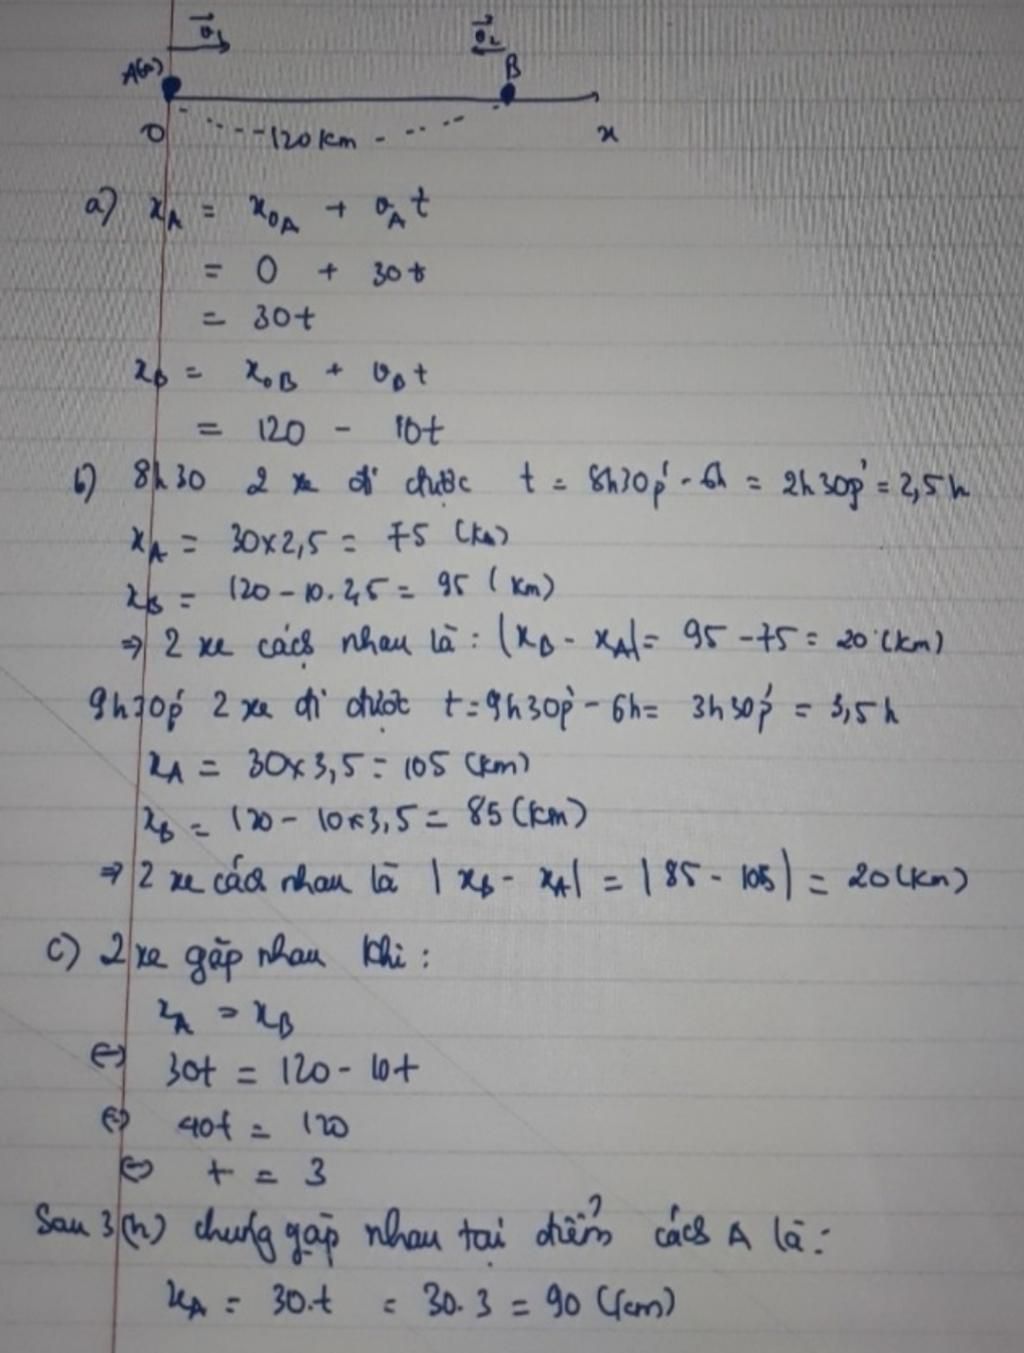 v₁ v₂
A(+) B
O 120 km x
a) x_A = x_0A + v_A t
= 0 + 30t
= 30t
x_B = x_0B + v_B t
= 120 - 10t
b) 8h30 2 xe đi được t = 8h30p' - 6h = 2h30p' = 2,5h
x_A = 30×2,5 = 75 (km)
x_B = 120 - 10.2,5 = 95 (km)
⇒ 2 xe cách nhau là: |x_B - x_A| = 95 - 75 = 20 (km)
9h30p' 2 xe đi được t = 9h30p' - 6h = 3h30p' = 3,5h
x_A = 30×3,5 = 105 (km)
x_B = 120 - 10×3,5 = 85 (km)
⇒ 2 xe cách nhau là |x_B - x_A| = |85 - 105| = 20 (km)
c) 2 xe gặp nhau khi:
x_A = x_B
⇔ 30t = 120 - 10t
⇔ 40t = 120
⇔ t = 3
Sau 3(h) chúng gặp nhau tại điểm cách A là:
x_A = 30.t = 30.3 = 90 (km)